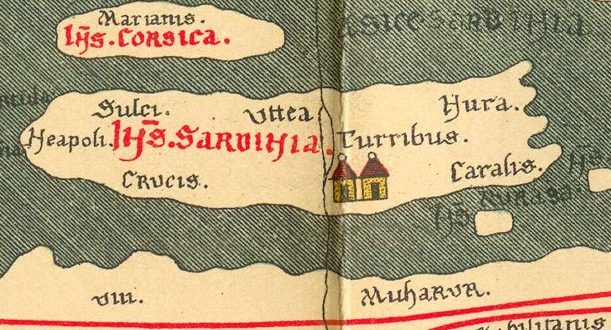 Marianis.
Iñs. Corsica.
Sulci. Uttea Nura.
Neapoli. Iñs. Sardinia. Turribus.
Crucis. Caralis.
VIII. Muharur.